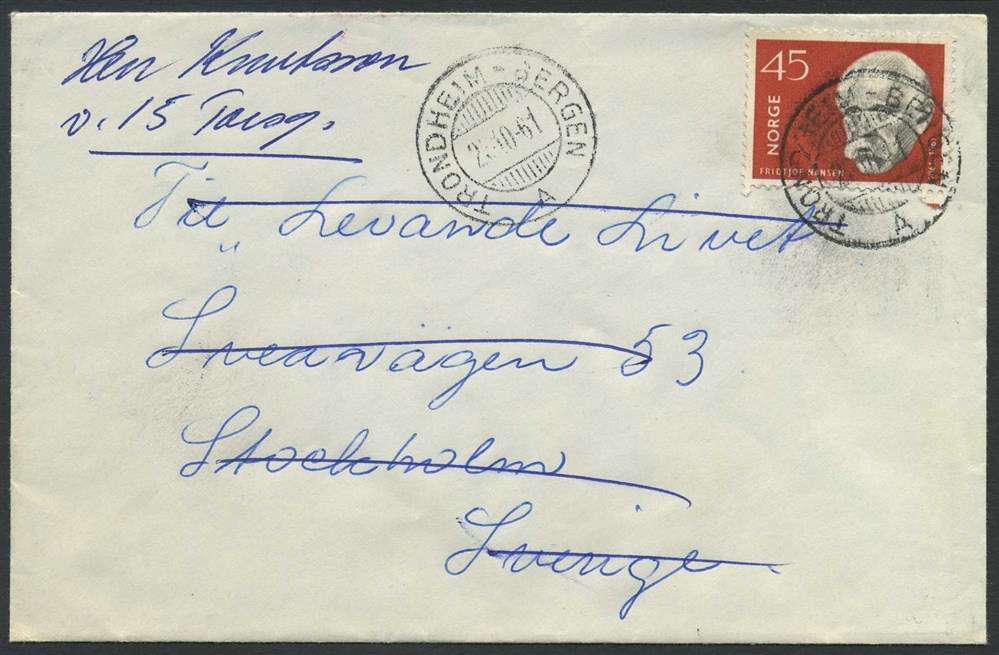 Herr Knutsson
v. 15 Torsg.
TRONDHEIM - BERGEN
10-61
A
45
NORGE
FRIDTJOF NANSEN
TRONDHEIM - BERGEN
A
Till Levande Livet
Sveavägen 53
Stockholm
Sverige